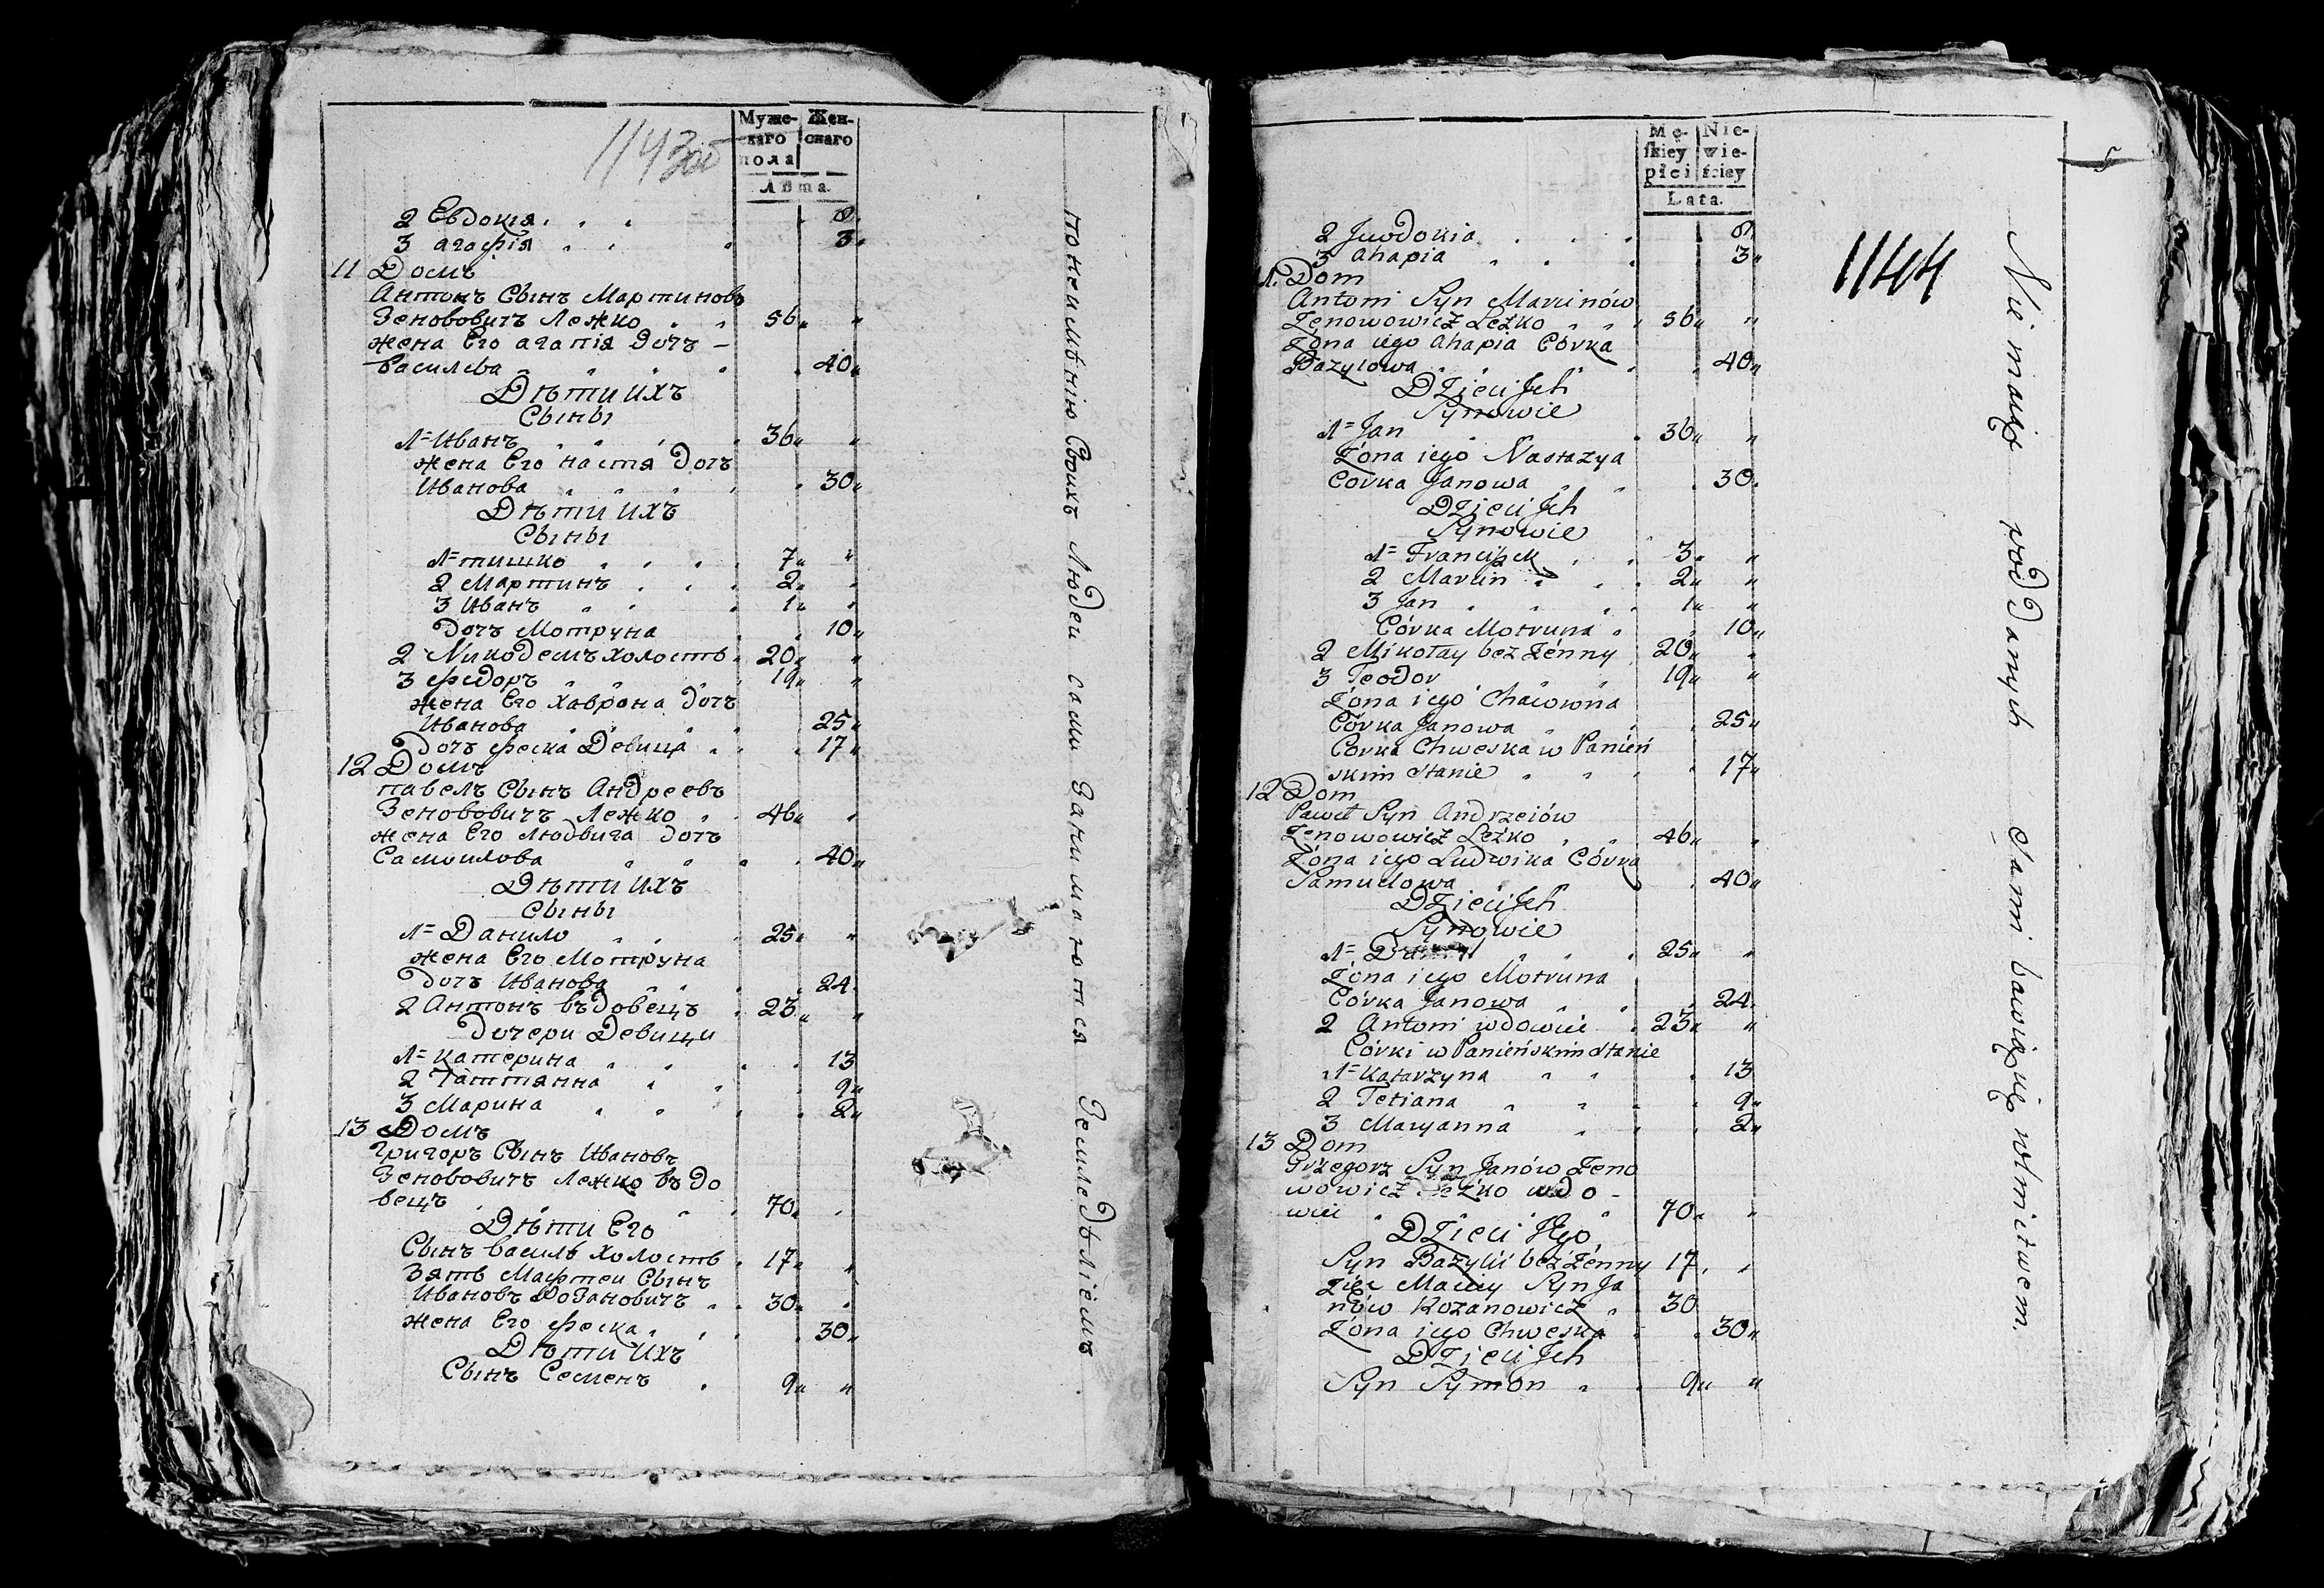 1143об
Муже-
скаго
пола
Жен-
скаго
Лѣта.
2 Евдокія 8
3 агафія 3
11 Домъ
Антонъ Сынъ Мартиновъ
Зенововичъ Лежко 56
жена Его агапія Дочь
василева 40
Дѣти ихъ
Сыны
1 Иванъ 36
жена Его настя Дочь
Иванова 30
Дѣти ихъ
Сыны
1 тишко 7
2 Мартинъ 2
3 Иванъ 1
Дочь Мотруна 10
2 Никодемъ холостъ 20
3 федоръ 19
жена Его Хаврона Дочь
Иванова 25
Дочь феска Девица 17
12 Домъ
павелъ Сынъ Андреевъ
Зенововичъ Лежко 46
жена Его людвига дочь
Самоилова 40
Дѣти ихъ
Сыны
1 Данило 25
жена Его Мотруна
Дочь Иванова 24
2 Антонъ въдовецъ 23
Дочери Девицы
1 катерина 13
2 Таттянна 9
3 Марина 2
13 Домъ
Григоръ Сынъ Ивановъ
Зенововичъ Лежко въдо
вецъ 70
Дѣти Его
Сынъ василь холостъ 17
Зять Мафтеи Сынъ
Ивановъ 30
жена Его феска 30
Дѣти ихъ
Сынъ Семенъ 9
понеимѣнію Своихъ Людеи сами Занимаются Земледѣліемъ
Mę-
skiey
płci
Nie-
wie-
sciey
Lata.
5
1144
2 Juwdokia 8
3 Ahapia 3
11 Dom
Antoni Syn Marcinów
Zenowowicz Leżko 56
Żona iego Ahapia Córka
Bazylowa 40
Dzieci Jch
Synowie
1 Jan 36
Żona iego Nastazya
Corka Janowa 30
Dzieci Jch
Synowie
1 Franciszek 3
2 Marcin 2
3 Jan 1
Córka Motruna 10
2 Mikołay bez Żenny 20
3 Teodor 19
Żona iego Chacowna
Córka Janowa 25
Corka Chweska w Panień
skim stanie 17
12 Dom
Paweł Syn Andrzeiów
Zenowowicz Leżko 46
Żona iego Ludwika Córka
Samuelowa 40
Dzieci Jch
Synowie
1 25
Żona iego Motruna
Córka Janowa 24
2 Antoni wdowiec 23
Córki w Panieńskim stanie
1 Katarzyna 13
2 Tetiana 9
3 Maryanna 2
13 Dom
Grzegorz Syn Janów Zeno
wowicz Leżko wdo-
wiec 70
Dzieci Jego
Syn Bazyli bez Żenny 17
Zięć Maciey Syn Ja
nów Kozanowicz 30
Żona iego Chweska 30
Dzieci Jch
Syn Symon 9
Nie maiąc poddanych Sami bawią się rolnictwem.